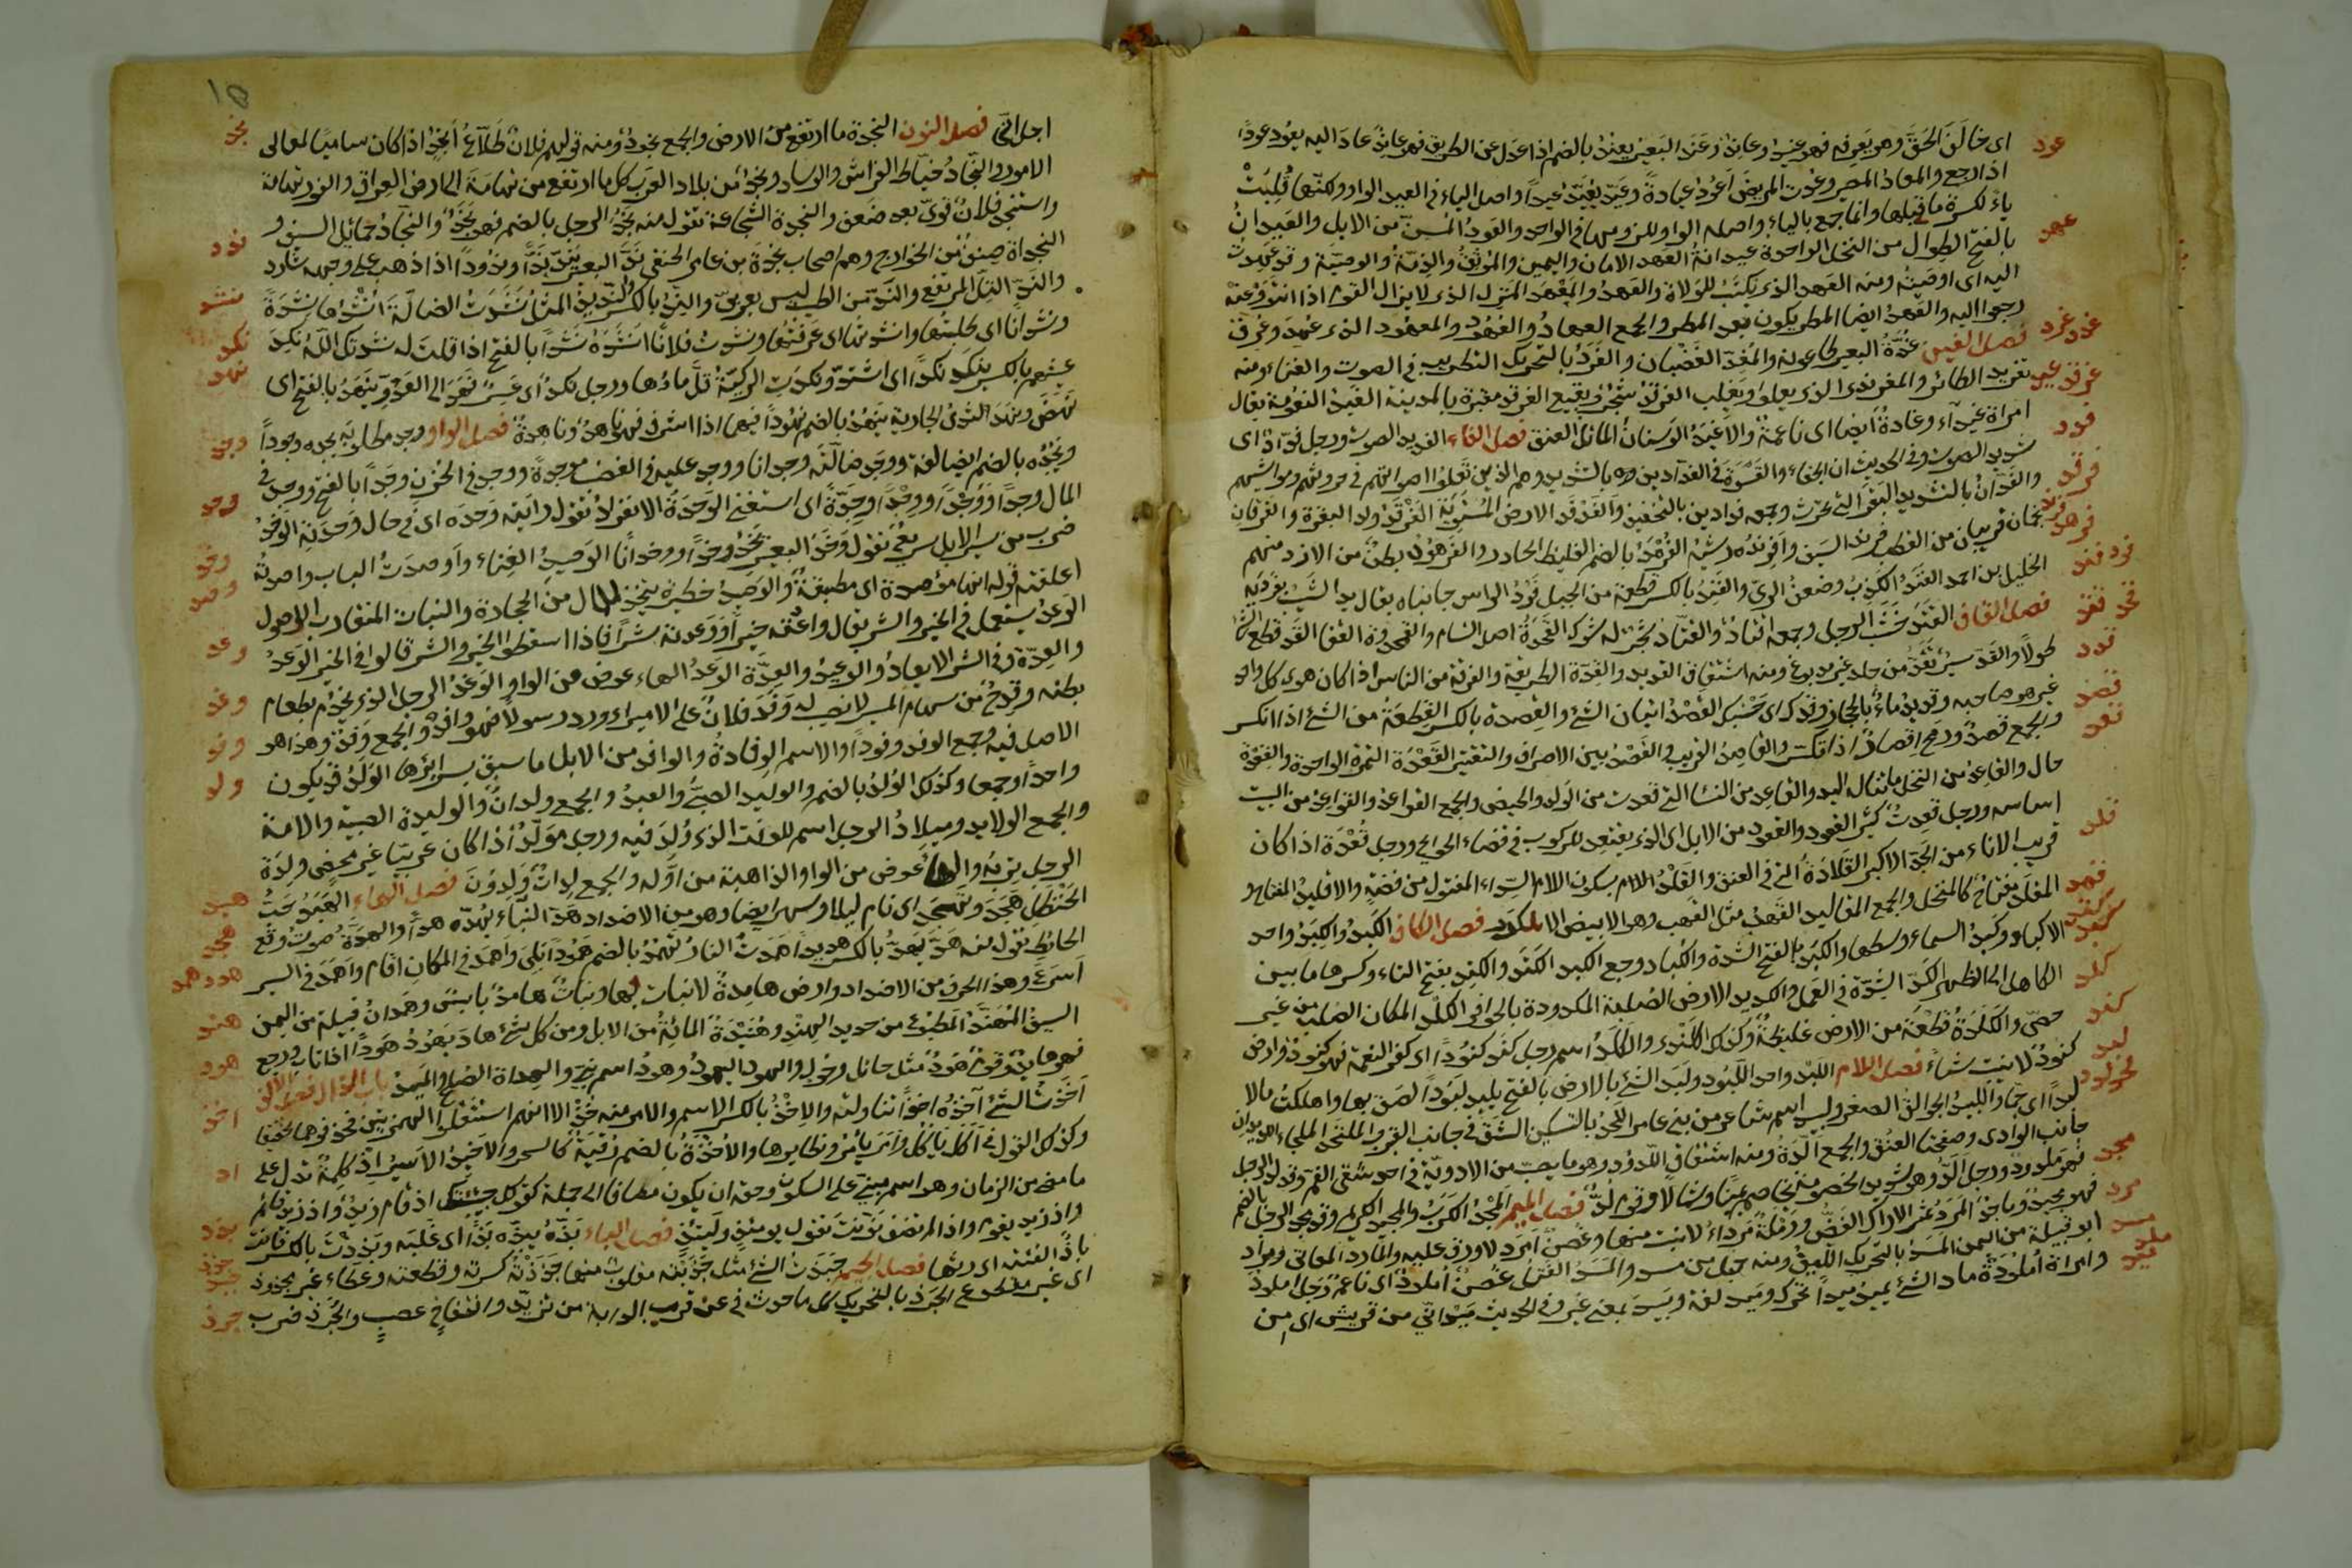 عود
اى خالَفَ الحقَّ وهو يَعرِفه فهو عنيد وعاند وعَنَدَ البَعيرُ يعنُدُ بالضم اذا عدل عن الطريق فهو عاند عادَ اليه يعُود عودًا
اذا رجع والمعاد المصير وعُدت المريضَ اَعُودُ عيادةً وعيّد يُعَيّد عيدًا واصل الياء فى العيد الواو ولكنها قُلِبَتْ
عهد
ياءً لكسرة ما قبلها وانما جمع بالياء واصله الواو للزومها فى الواحد والعَود المُسِنّ من الابل والعَيدانُ
بالفتح الطوال من النخل الواحدة عيدانةٌ العهد الامان واليمين والموثِق والذِمّة والوصيّة وقد عَهِدتُ
اليه اى اوصَيتُه ومنه العَهد الذى يكتَب للوُلاة والعَهدُ والمَعْهَد المَنزل الذى لا يزال القوم اذا انتَوَوْا عنه
رجعوا اليه والعَهدُ ايضا المطر يكون بعد المطر والجمع العِهادُ والعُهُود والمعهود الذى عُهِدَ وعُرِفَ
غدد غرد
فصل الغين غُدّةُ البعير طاعونه والمُغِدّ الغَضْبان والغَرَدُ بالتحريك التطريب فى الصوت والغناء ومنه
غرقد غيد
تغريد الطائر والمغرندى الذى يعلو ويَغلِب الغرقَدُ شَجَرٌ وبقيع الغرقد مقبَرة بالمدينة الغَيَدُ النُعُومة يقال
امراة غيداء وغادةٌ ايضا اى ناعمة والاغيَدُ الوَسنانُ المائلُ العنق فصل الفاء الفديد الصوت ورجل فدّاد اى
فدد
شديد الصوت وفى الحديث ان الجفاء والقَسْوَةَ فى الفدادين وهم بالتشديد وهم الذين تَعلُوا اصواتهم فى حروثهم ومواشيهم
فرقد
والفدّانُ بالتشديد البقَر التى تحرث وجمعه فدادين بالتخفيف والفَدْفَد الارض المُستوِيَة الفَرْقَدُ ولد البقرة والفرقدان
فرند فرهد
نجمان قريبان من القطب فِرِند السَيف واِفرِنده وَشْيُه الفُرْهُدُ بالضم الغليظ الحادر والفَرهُودُ بطنٌ من الازد منهم
فند فود
الخليل بن احمد الفَنَدُ الكَذِبُ وضعفُ الرأى والفِندُ بالكسر قطعة من الجبل فَوْدُ الراس جانباه يقال بدا الشَيب بفَودَيه
قتد قحد
فصل القاف القَتَد خَشَب الرحل وجمعه اقتاد والقَتاد شجَر له شَوك القَحَدَةُ اصل السَنام والقمحدوة القفا القَد قطع الشئ
قدد
طولًا والقَدّ سيرٌ تُقَدّ من جلد غير مدبوغ ومنه اشتقاق القديد والقِدّة الطريقة والفرقة من الناس اذا كان هوى كل واحد
قصد
غير هوى صاحبه وقديد ماء بالحجاز وقدك اى حَسْبُك القَصْد اتيان الشئ والقِصدة بالكسر القِطعة من الشئ اذا انكسر
قعد
والجمع قِصَد ورُمح اقصاد اذا تكسّر والقاصد القريب والقَصْد بين الاسراف والتقتير القَعْدَة المرة الواحدة والقِعْدة
حال والقاعِد من النخل ما تناله اليد والقاعِد من النسا التى قعدت من الولد والحيض والجمع القواعد والقواعد من البيت
اساسه ورجل قعدة كثير القعود والقعود من الابل اى الذى يقتعد للركوب فى قضاء الحوائج ورجل قُعْدَة اذا كان
قلد
قريب الاباء من الجدّ الاكبر القلادة التى فى العنق والقَلْد اللام بسكون اللام السِوار المفتول من فِضّة والاقليد المفتاح و
قهد
المِقلَد مِفتاح كالمنجل والجمع المقاليد القهد مثل القهب وهو الابيض الاكدر فصل الكاف الكَبِدُ والكِبْدُ واحد
كبد كتد
الاكباد وكَبِدُ السماء وسطها والكَبَدُ بالفتح الشدة والكُباد وجع الكبد الكَتَد والكتِد بفتح التاء وكسرها ما بين
كدد
الكاهل الى الظهر الكَدّ الشِدّة فى العمل والكديد الارض الصُلبة المكدودة بالحوافر الكَلَد المكان الصُلب من غير
كلد كند
حصًى والكَلَدَةُ قطعَة من الارض غليظةٌ وكذلك الكَلَنْدى والكَلَدُ اسم رجل كَنَد كُنودًا اى كفر النعمة فهو كنود وارض
لبد
كنودٌ لا تنبت شيأً فصل اللام اللِبْد واحد اللُبُود ولَبَد الشئ بالارض بالفتح يلبد لبودًا لصق بها واهلكتُ مالا
لحد لدد
لبدًا اى جمّا واللبيد الجوالق الصغير ولبيد اسم شاعر من بنى عامر اللَحْدُ بالتسكين الشقّ فى جانب القبر والملتحد الملجاء اللديدان
جانبا الوادى وصفحتا العنق والجمع اَلِدّة ومنه اشتقاق اللَدُود وهو ما يصبّ من الادوية فى احد شقى الفم وقد لُدّ الرجل
مجد
فهو مَلدود ورجل اَلَدّ وهو شديد الخصومة يخاصم يمينًا وشمالًا وقوم لُدّ فصل الميم المَجْد الكَرَمُ والمجيد الكريم وقد مجد الرجل بالضم
مرد
فهو مجيد وماجد المَرْدُ ثمر الاراك الغَضّ ورَملة مَرداء لا تنبت منها وغُصن اَمرد لا ورق عليه والمارد العاتى ومراد
مسد ملد
ابو قبيلة من اليمن المَسَد بالتحريك الليف ومنه حبل من مسد والمَسْد الفَتل غصن اُملود اى ناعم ورجل املود
ميد
وامراة اُملودة ماد الشئ يميد ميدًا تحرك وميد لغة فى بيد بمعنى غير وفى الحديث ميد انى من قريش اى من
١٥
نجد
اجل انّى فصل النون النجدة ما ارتفع من الارض والجمع نجود ومنه قولهم فلان طَلّاعُ اَنجُد اذا كان ساميًا لمعالى
الامور والنجّاد خيّاط الفراش والوساد ونجد من بلاد العرب كل ما ارتفع من تهامة الى ارض العراق والغور تهامة
واستنجد فلان قوى بعد ضعف والنجدة الشجاعة تقول منه نجُد الرجل بالضم فهو نَجُد والنجاد حمائل السيف و
ندد
النجدات صِنف من الخوارج وهم اصحاب نجدة بن عامر الحنفى نَدّ البعير يَنِدّ نَدًّا وندودًا اذا ذهب على وجهه شارد
نشد
والنَدّ التَلّ المرتفع والنَدّ من الطيب ليس بعربى والنِدّ بالكسر والنديد المثل نَشَدتُ الضالّة اَنشُدُها نِشْدَةً
ونشدانًا اى طلبتُها وانشدتها اى عرّفتُها ونشدت فلانًا انشُدُه نشدًا بالفتح اذا قلت له نشدتك اللهَ نكِدَ
نكد
عيشهم بالكسر ينكَد نكَدًا اى اشتدّ ونكدت الركيّة قلّ ماؤها ورجل نكد اى عَسِرٌ نهَد الى العدوّ ينهَد بالفتح اى
نهد
نهض ونهد الثدى الجارية ينهُد بالضم نهودًا فيهما اذا اشرف فهى ناهد وناهدة فصل الواو وجد مطلوبه يجده وجودًا
وجد
ويجُده بالضم ايضا لغة ووجد ضالّته وجدانا ووجد عليه فى الغضب موجدة ووجد فى الحزن وجدًا بالفتح ووجد فى
وحد
المال وجدًا ووُجدًا ووِجدًا وجِدَةً اى استغنى الوَحْدةُ الانفراد تقول رايته وحدَه اى فى حال وحدته الوخد
وخد
ضرب من سير الابل سريع تقول وخد البعير يخد وخدًا ووخدانًا الوصيد الفناء واوصدتُ الباب واصدته
وصد
اغلقته قوله انها مؤصدة اى مطبقة والوصيد حظيرة تتخذ للمال من الحجارة والنبات المتقارب الاصول
وعد
الوعد يستعمل فى الخير والشر يقال واعدته خيرًا ووعدته شرًا فاذا اسقطوا الخير والشر قالوا فى الخير الوعد
والعدة وفى الشر الايعاد والوعيد والعِدَة الوَعد الهاء عوض من الواو الوَغد الرجل الذى يخدم بطعام
وغد
بطنه وقِدح من سهام الميسر لا نصيب له وفد فلان على الامير اى ورد رسولًا فهو وافد والجمع وَفد وهذا هو
وفد
الاصل فيه وجمع الوفد وفودًا والاسم الوفادة والوافد من الابل ما سبق سائرها الوَلَد قد يكون
ولد
واحدًا وجمعا وكذلك الوُلد بالضم والوليد الصبىّ والعبد والجمع ولدان والوليدة الصبيّة والامة
والجمع الولايد وميلاد الرجل اسم للوقت الذى وُلد فيه ورجل مولّد اذا كان عربيّا غير محض ولِدَة
الرجل تِربُه والهاء عوض من الواو الذاهبة من اوّله والجمع لِدات ولِدُونَ فصل الهاء الهَبيد حَبّ
هبد
الحنظل هَجَد وتهجّد اى نام ليلا وسهر ايضا وهو من الاضداد هدّ البناء يهُدّه هدًّا والهدّة صوت وقع
هجد
الحائط تقول منه هدّ يهِدّ بالكسر هديدًا همدت النار تهمُد بالضم همودًا اى بلى واهمد فى المكان اقام واهمد فى السير
هدد همد
اسرع وهذا الحرف من الاضداد وارض هامدة لا نبات بها ونبات هامد يابس وهمدان قبيلة من اليمن
هند
السيف المُهنّد المطبوع من حديد الهند وهُنَيْدَة المائة من الابل ومن كل شئ هاد يهود هودًا اذا تاب ورجع
هود
فهو هايد وقوم هُود مثل حائل وحُول والهود اليهود وهود اسم نبى والهوادة الصلح والميل باب الذال فصل الالف
اخذ
اخذت الشئ آخذه اخذًا تناولته والاِخذ بالكسر الاسم والامر منه خذ الا انهم استثقلوا الهمزتين فحذفوهما تخفيفا
وكذلك القول فى اكل ياكل وامر يامر ونظايرها والاُخذة بالضم رُقية كالسحر والاخيذ الاسير اذ كلمة تدل على
اذ
ما مضى من الزمان وهو اسم مبنى على السكون وحقه ان يكون مضافا الى جملة كقولك جئتك اذ قام زيد واذ زيد قائم
واذ زيد يقوم واذا لم تضف نوّنت تقول يومئذٍ وليلتئذٍ فصل الباء بذّه يبذّه بذًّا اى غلبه وبذِذت بالكسر فانت
بذذ
باذّ الهيئة اى رثّها فصل الجيم جبذت الشئ مثل جذبته مقلوب منها جذذته كسرته وقطعته وعطاء غير مجذوذ
جبذ جذذ
اى غير مقطوع الجرذ بالتحريك كل ما حدث فى عرقوب الدابة من تزيّد وانتفاخ عصب والجُرَذ ضرب
جرذ